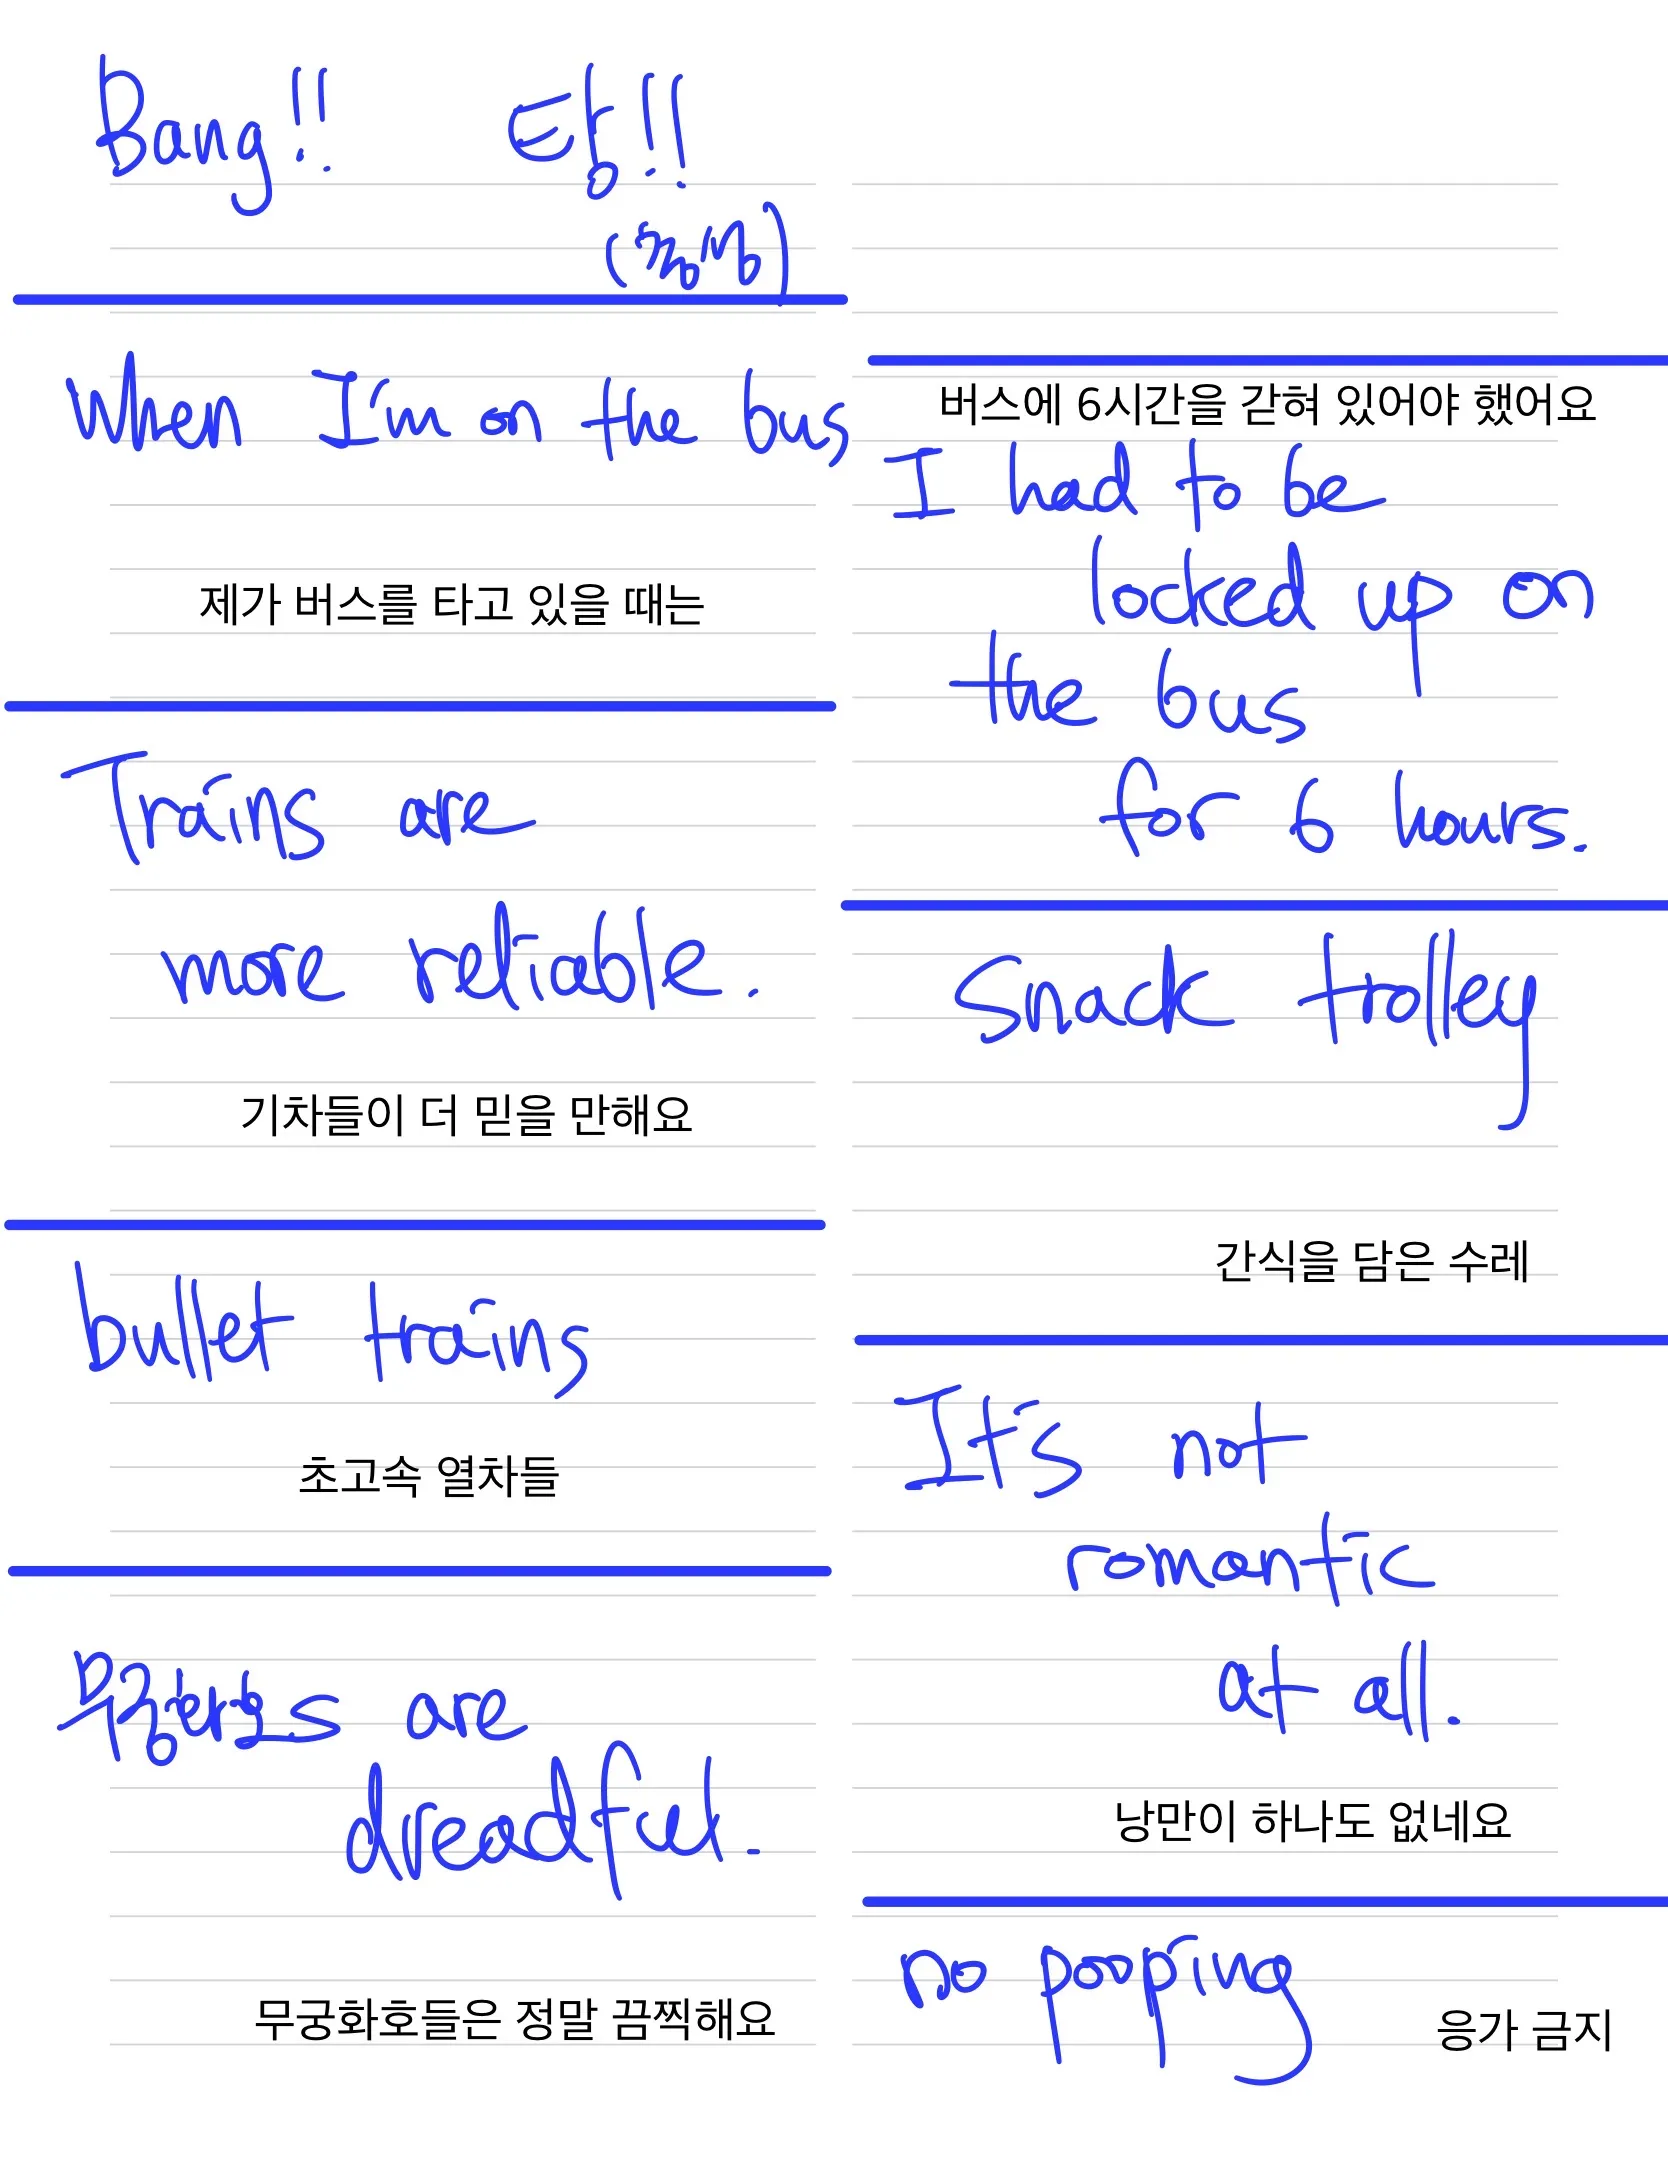 Bang!! 탕!!
(총성)
When I'm on the bus,
제가 버스를 타고 있을 때는
Trains are
more reliable.
기차들이 더 믿을 만해요
bullet trains
초고속 열차들
are
dreadful.
무궁화호들은 정말 끔찍해요
버스에 6시간을 갇혀 있어야 했어요
I had to be
locked up on
the bus
for 6 hours.
snack trolley
간식을 담은 수레
It's not
romantic
at all.
낭만이 하나도 없네요
no pooping
응가 금지